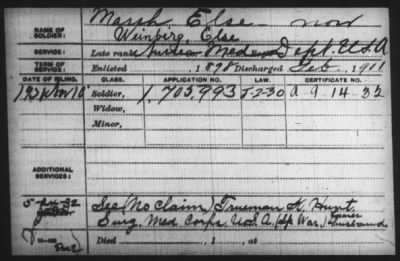 Marsh Else now
NAME OF SOLDIER: Weinberg, Else
SERVICE: Late rank, Nurse Med Dept. U.S.A
TERM OF SERVICE: Enlisted , 1898 Discharged Feb , 1911
DATE OF FILING. CLASS. APPLICATION NO. LAW. CERTIFICATE NO.
Soldier, 1,703,993 5-2-30 a a 14 32
Widow,
Minor,
ADDITIONAL SERVICES:
5-24-32 See (No Claim) Trueman K. Hunt
Surg. Med. Corps. U.S.A. (Sp. War.) former husband
Died , 1 , at